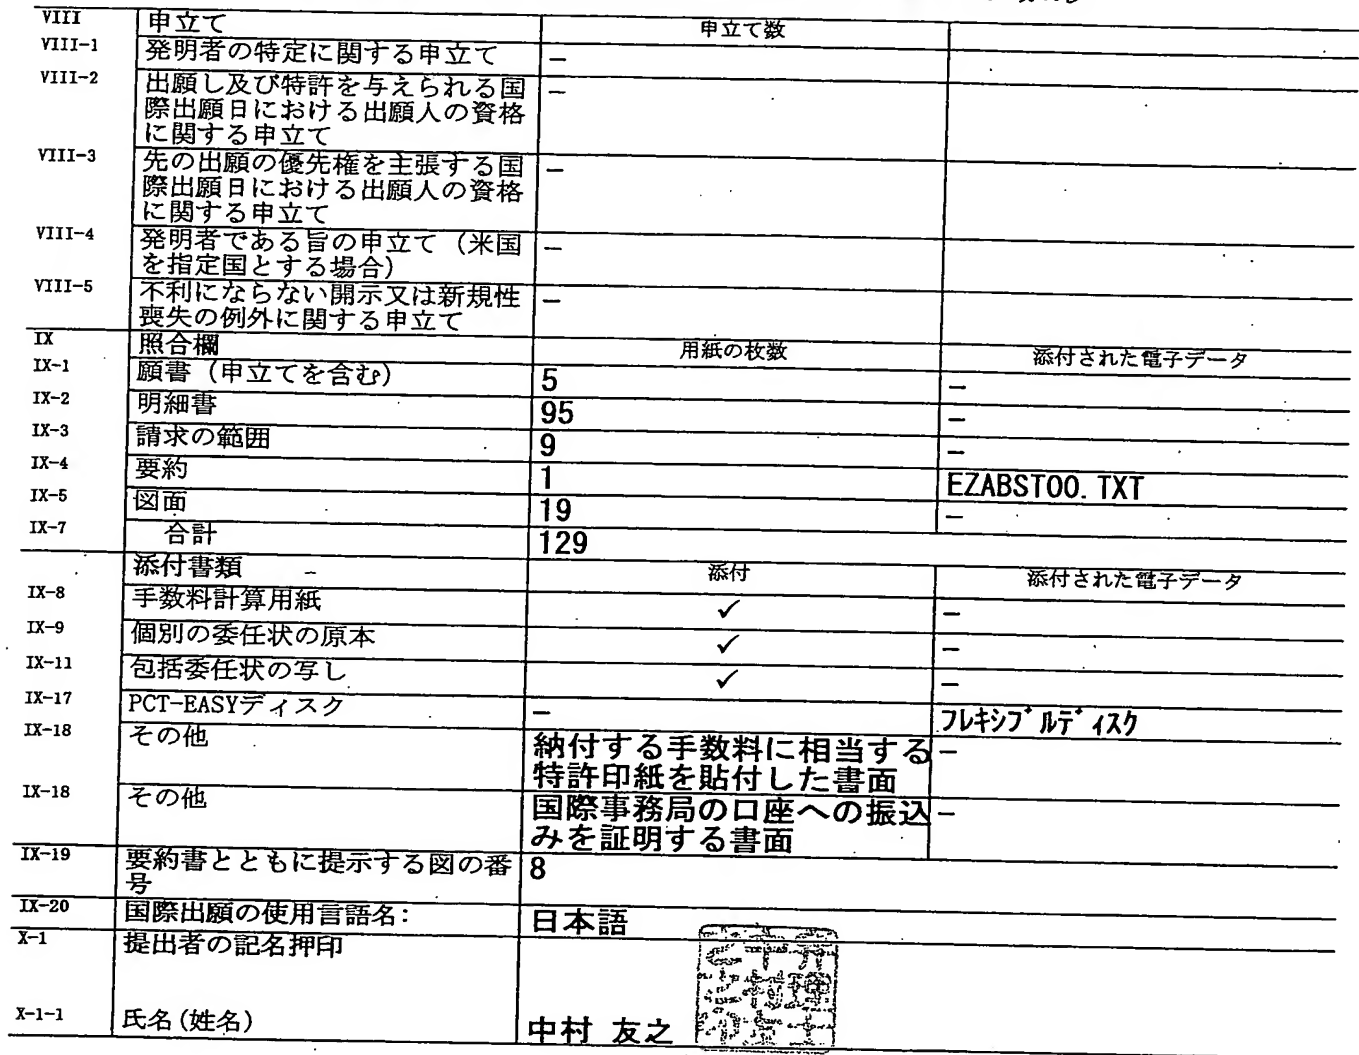 VIII 申立て 申立て数
VIII-1 発明者の特定に関する申立て -
VIII-2 出願し及び特許を与えられる国 -
際出願日における出願人の資格
に関する申立て
VIII-3 先の出願の優先権を主張する国 -
際出願日における出願人の資格
に関する申立て
VIII-4 発明者である旨の申立て（米国 -
を指定国とする場合）
VIII-5 不利にならない開示又は新規性 -
喪失の例外に関する申立て
IX 照合欄 用紙の枚数 添付された電子データ
IX-1 願書（申立てを含む） 5 -
IX-2 明細書 95 -
IX-3 請求の範囲 9 -
IX-4 要約 1 EZABST00.TXT
IX-5 図面 19 -
IX-7 合計 129
添付書類 添付 添付された電子データ
IX-8 手数料計算用紙 ✓ -
IX-9 個別の委任状の原本 ✓ -
IX-11 包括委任状の写し ✓ -
IX-17 PCT-EASYディスク - ﾌﾚｷｼﾌﾞﾙﾃﾞｨｽｸ
IX-18 その他 納付する手数料に相当する -
特許印紙を貼付した書面
IX-18 その他 国際事務局の口座への振込 -
みを証明する書面
IX-19 要約書とともに提示する図の番 8
号
IX-20 国際出願の使用言語名: 日本語
X-1 提出者の記名押印
X-1-1 氏名(姓名) 中村 友之